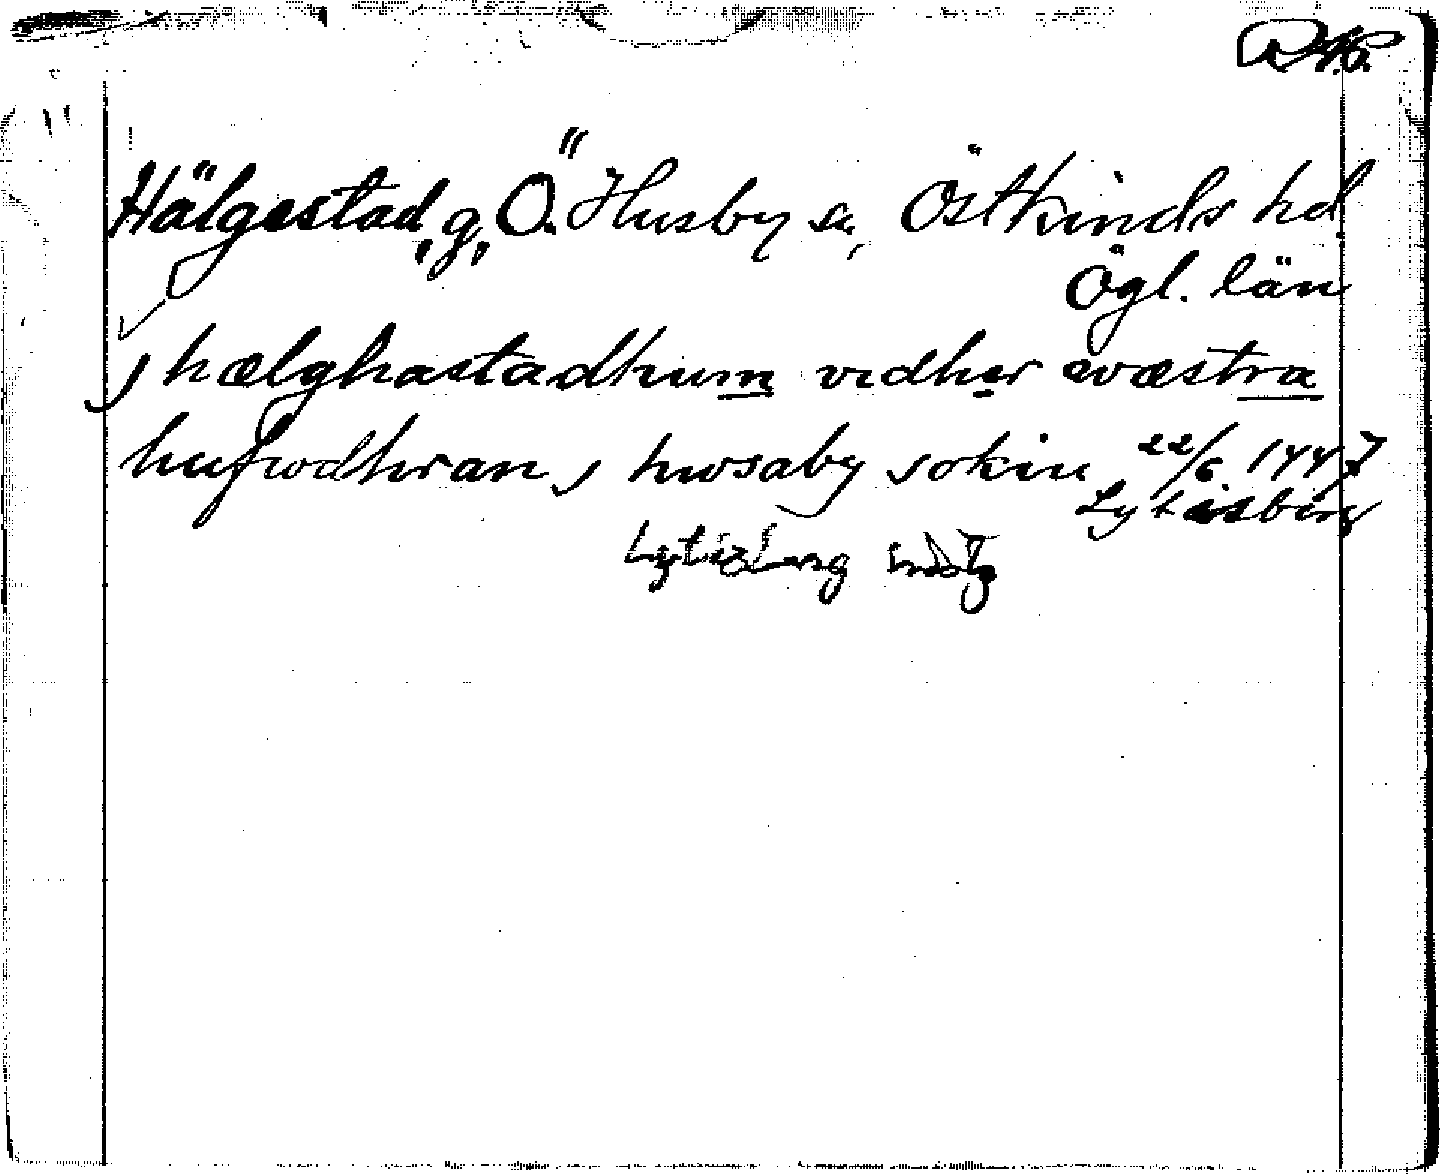 RAp.
Hälgestad, g, Ö. Husby sn, Östkinds hd
Ögl. län
j hælghastadhum vidher wæstra
hufwdhran j hwsaby sokin 22/6 1447
Lytisberg